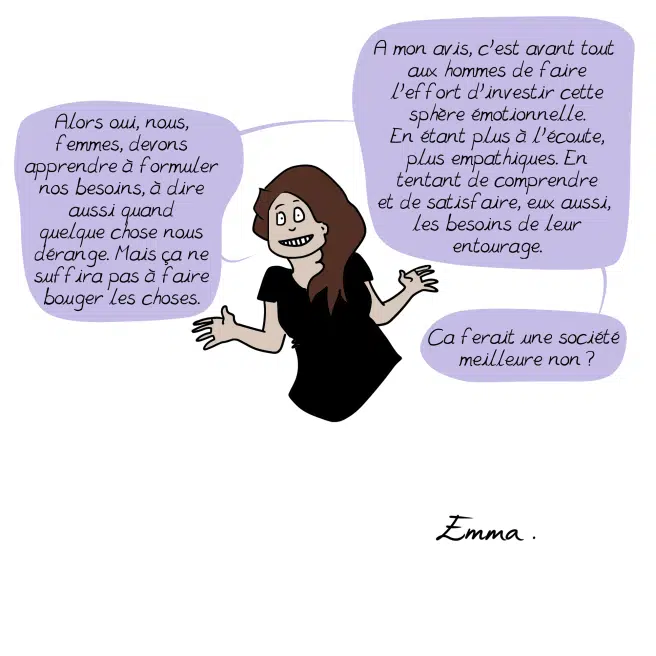 Alors oui, nous,
femmes, devons
apprendre à formuler
nos besoins, à dire
aussi quand
quelque chose nous
dérange. Mais ça ne
suffira pas à faire
bouger les choses.
A mon avis, c'est avant tout
aux hommes de faire
l'effort d'investir cette
sphère émotionnelle.
En étant plus à l'écoute,
plus empathiques. En
tentant de comprendre
et de satisfaire, eux aussi,
les besoins de leur
entourage.
Ca ferait une société
meilleure non ?
Emma.